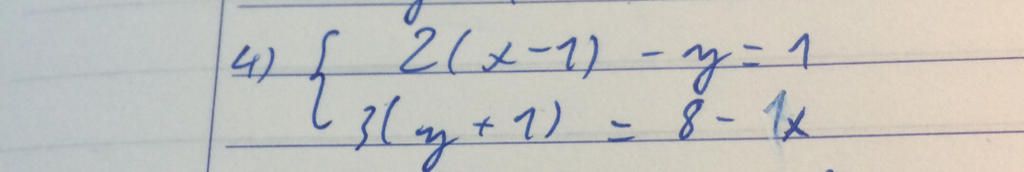 4) { 2(x-1) - y = 1
3(y+1) = 8 - 1x